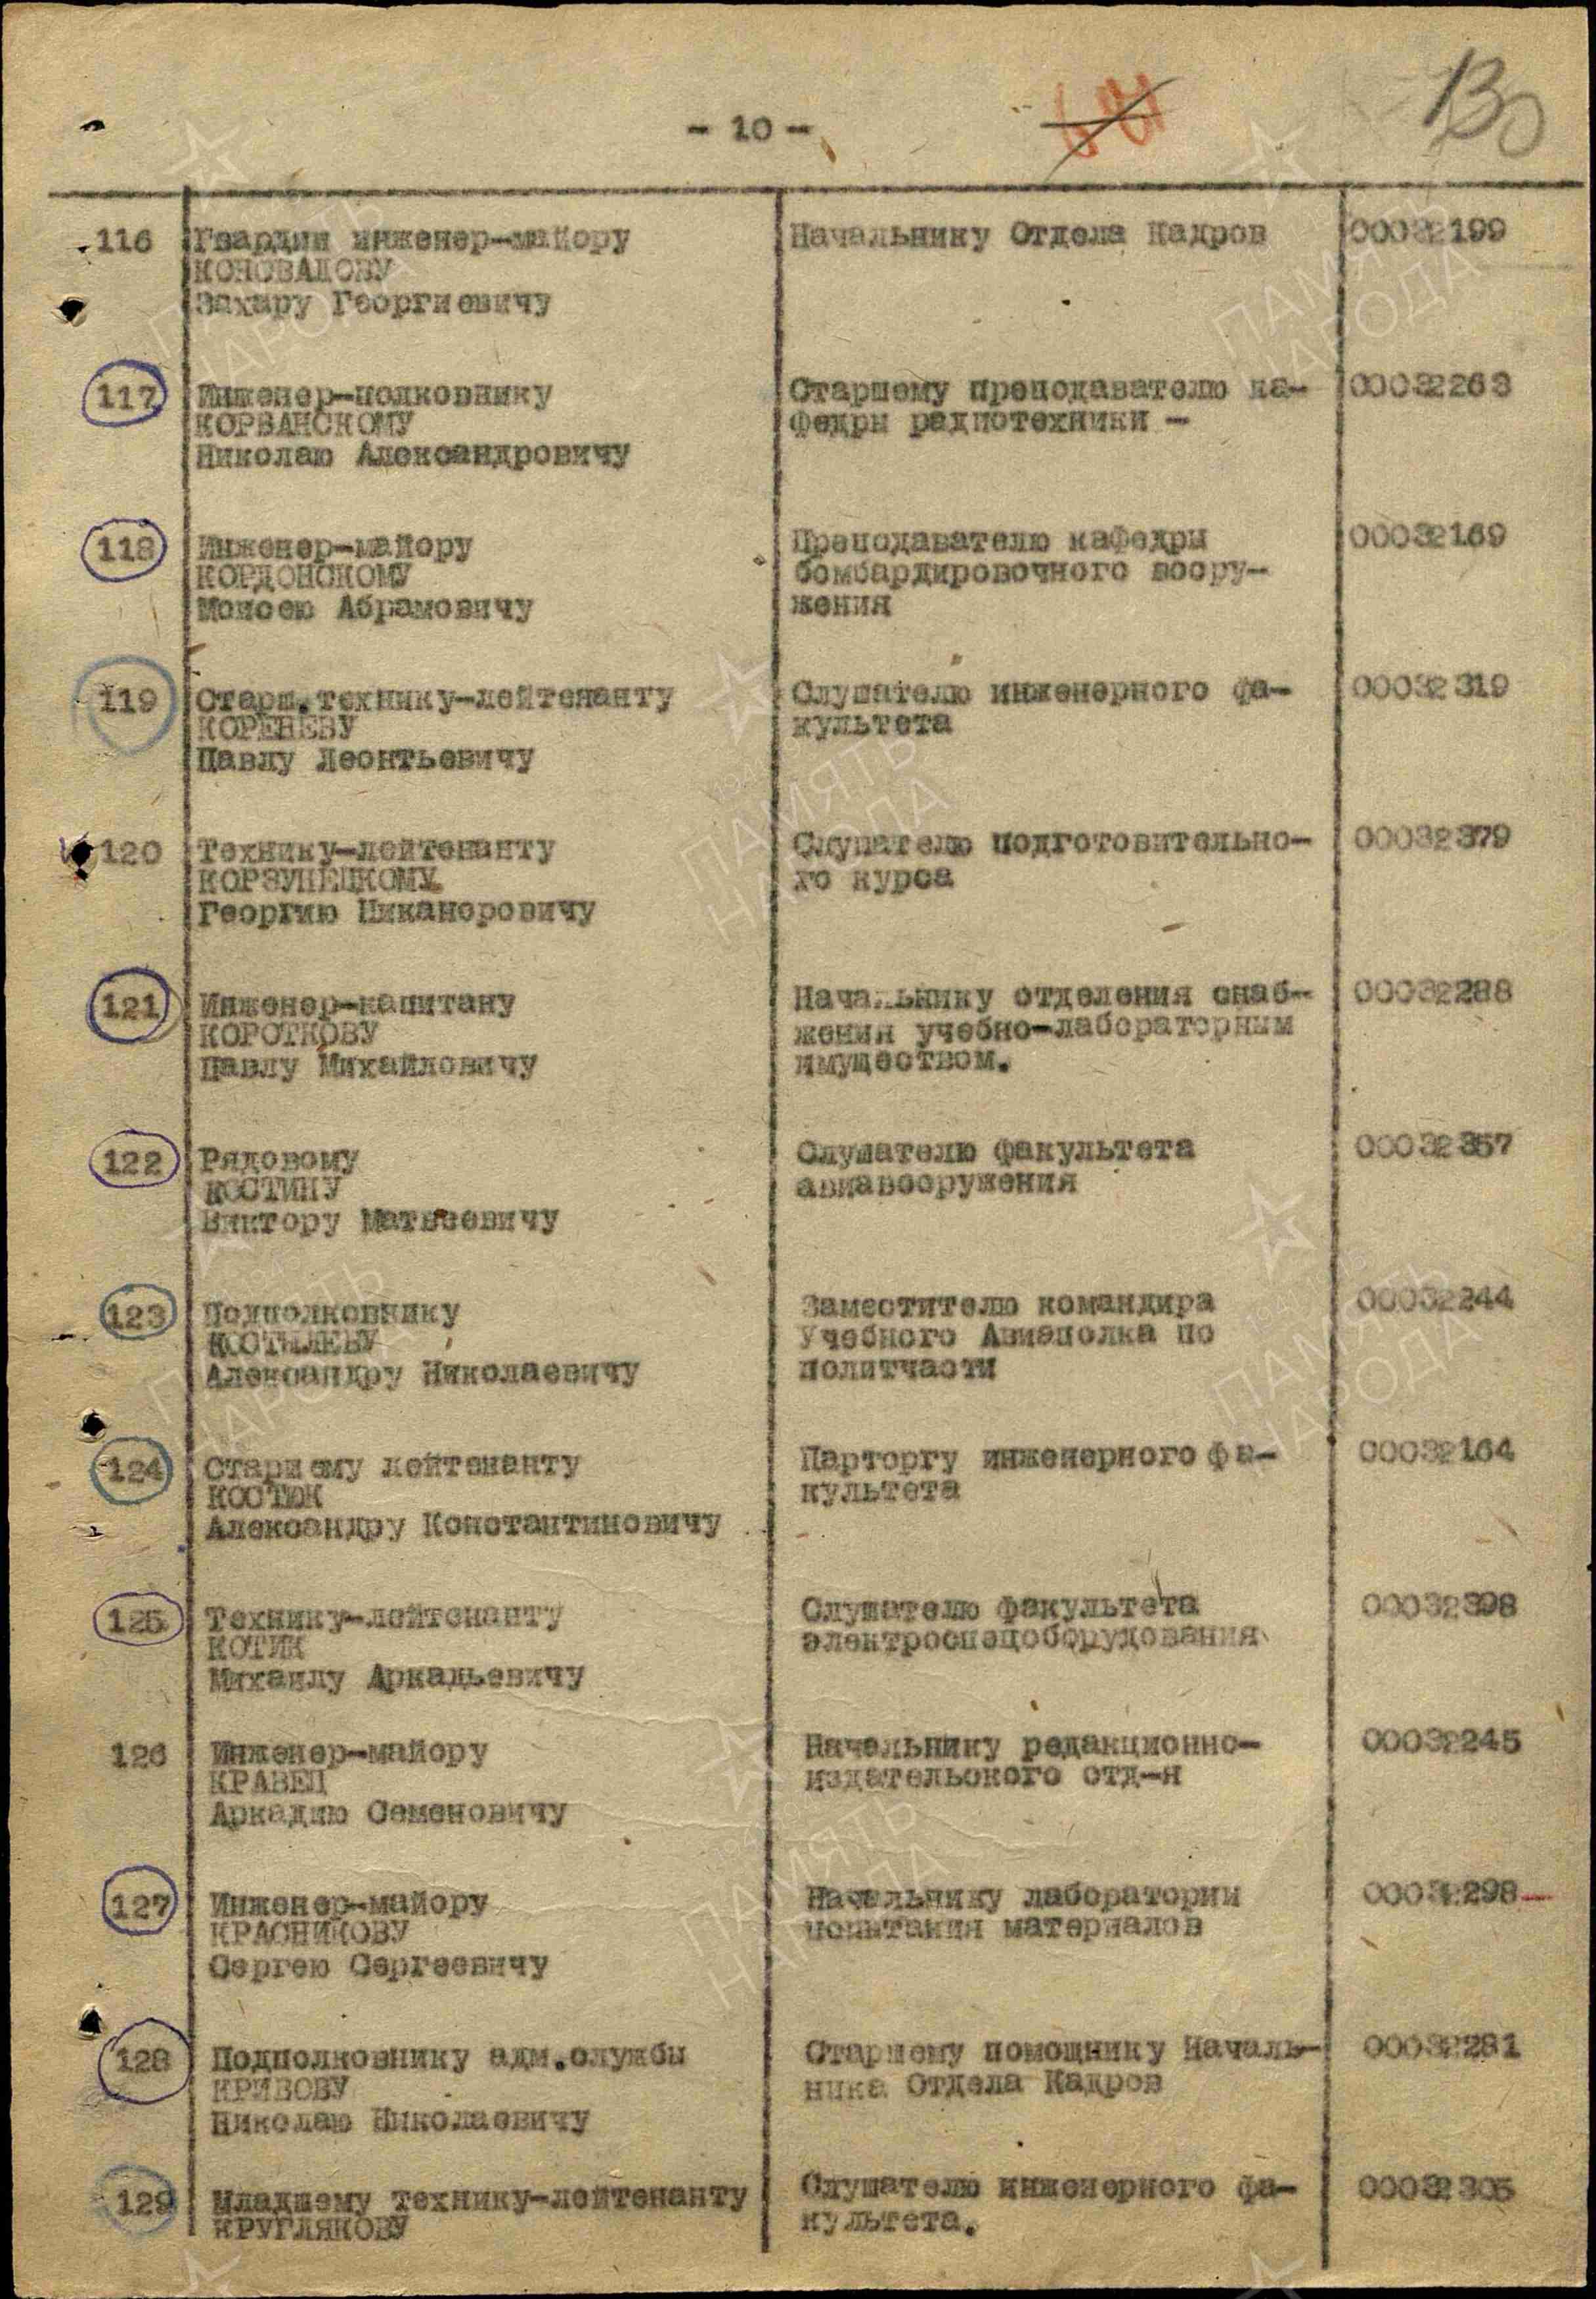 - 10 -
130
116 Гвардии инженер-майору Начальнику Отдела Кадров 00032199
КОНОВАЛОВУ
Захару Георгиевичу
117 Инженер-полковнику Старшему преподавателю ка- 00032263
КОРВАНСКОМУ федры радиотехники -
Николаю Александровичу
118 Инженер-майору Преподавателю кафедры 00032169
КОРДОНСКОМУ бомбардировочного воору-
Моисею Абрамовичу жения
119 Старш.технику-лейтенанту Слушателю инженерного фа- 00032319
КОРЕНЕВУ культета
Павлу Леонтьевичу
120 Технику-лейтенанту Слушателю подготовительно- 00032379
КОРЗУНЕЦКОМУ го курса
Георгию Никаноровичу
121 Инженер-капитану Начальнику отделения снаб- 00032288
КОРОТКОВУ жения учебно-лабораторным
Павлу Михайловичу имуществом.
122 Рядовому Слушателю факультета 00032357
КОСТИНУ авиавооружения
Виктору Матвеевичу
123 Подполковнику Заместителю командира 00032244
КОСТЫЛЕВУ Учебного Авиаполка по
Александру Николаевичу политчасти
124 Старшему лейтенанту Парторгу инженерного фа- 00032164
КОСТЮК культета
Александру Константиновичу
125 Технику-лейтенанту Слушателю факультета 00032398
КОТИК электроспецоборудования
Михаилу Аркадьевичу
126 Инженер-майору Начальнику редакционно- 00032245
КРАВЕЦ издательского отд-я
Аркадию Семеновичу
127 Инженер-майору Начальнику лаборатории 00032298
КРАСНИКОВУ испытания материалов
Сергею Сергеевичу
128 Подполковнику адм.службы Старшему помощнику Началь- 00032281
КРИВОВУ ника Отдела Кадров
Николаю Николаевичу
129 Младшему технику-лейтенанту Слушателю инженерного фа- 00032305
КРУГЛЯКОВУ культета.
ПАМЯТЬ
НАРОДА